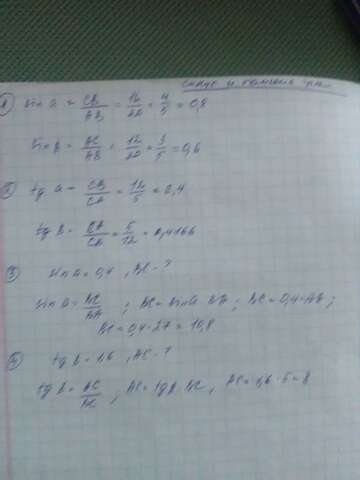 синус и
1) sin a = CB/AB = 16/20 = 4/5 = 0,8
sin B = AC/AB = 12/20 = 3/5 = 0,6
2) tg a = CB/CA = 12/5 = 0,4
tg B = CA/CB = 5/12 = 0,4166
3) sin a = 0,4 , BC - ?
sin a = BC/BA ; BC = sin a · BA ; BC = 0,4 · AB ;
BC = 0,4 · 27 = 10,8
4) tg B = 1,6 , AC - ?
tg B = AC/BC ; AC = tg B · BC , AC = 1,6 · 5 = 8